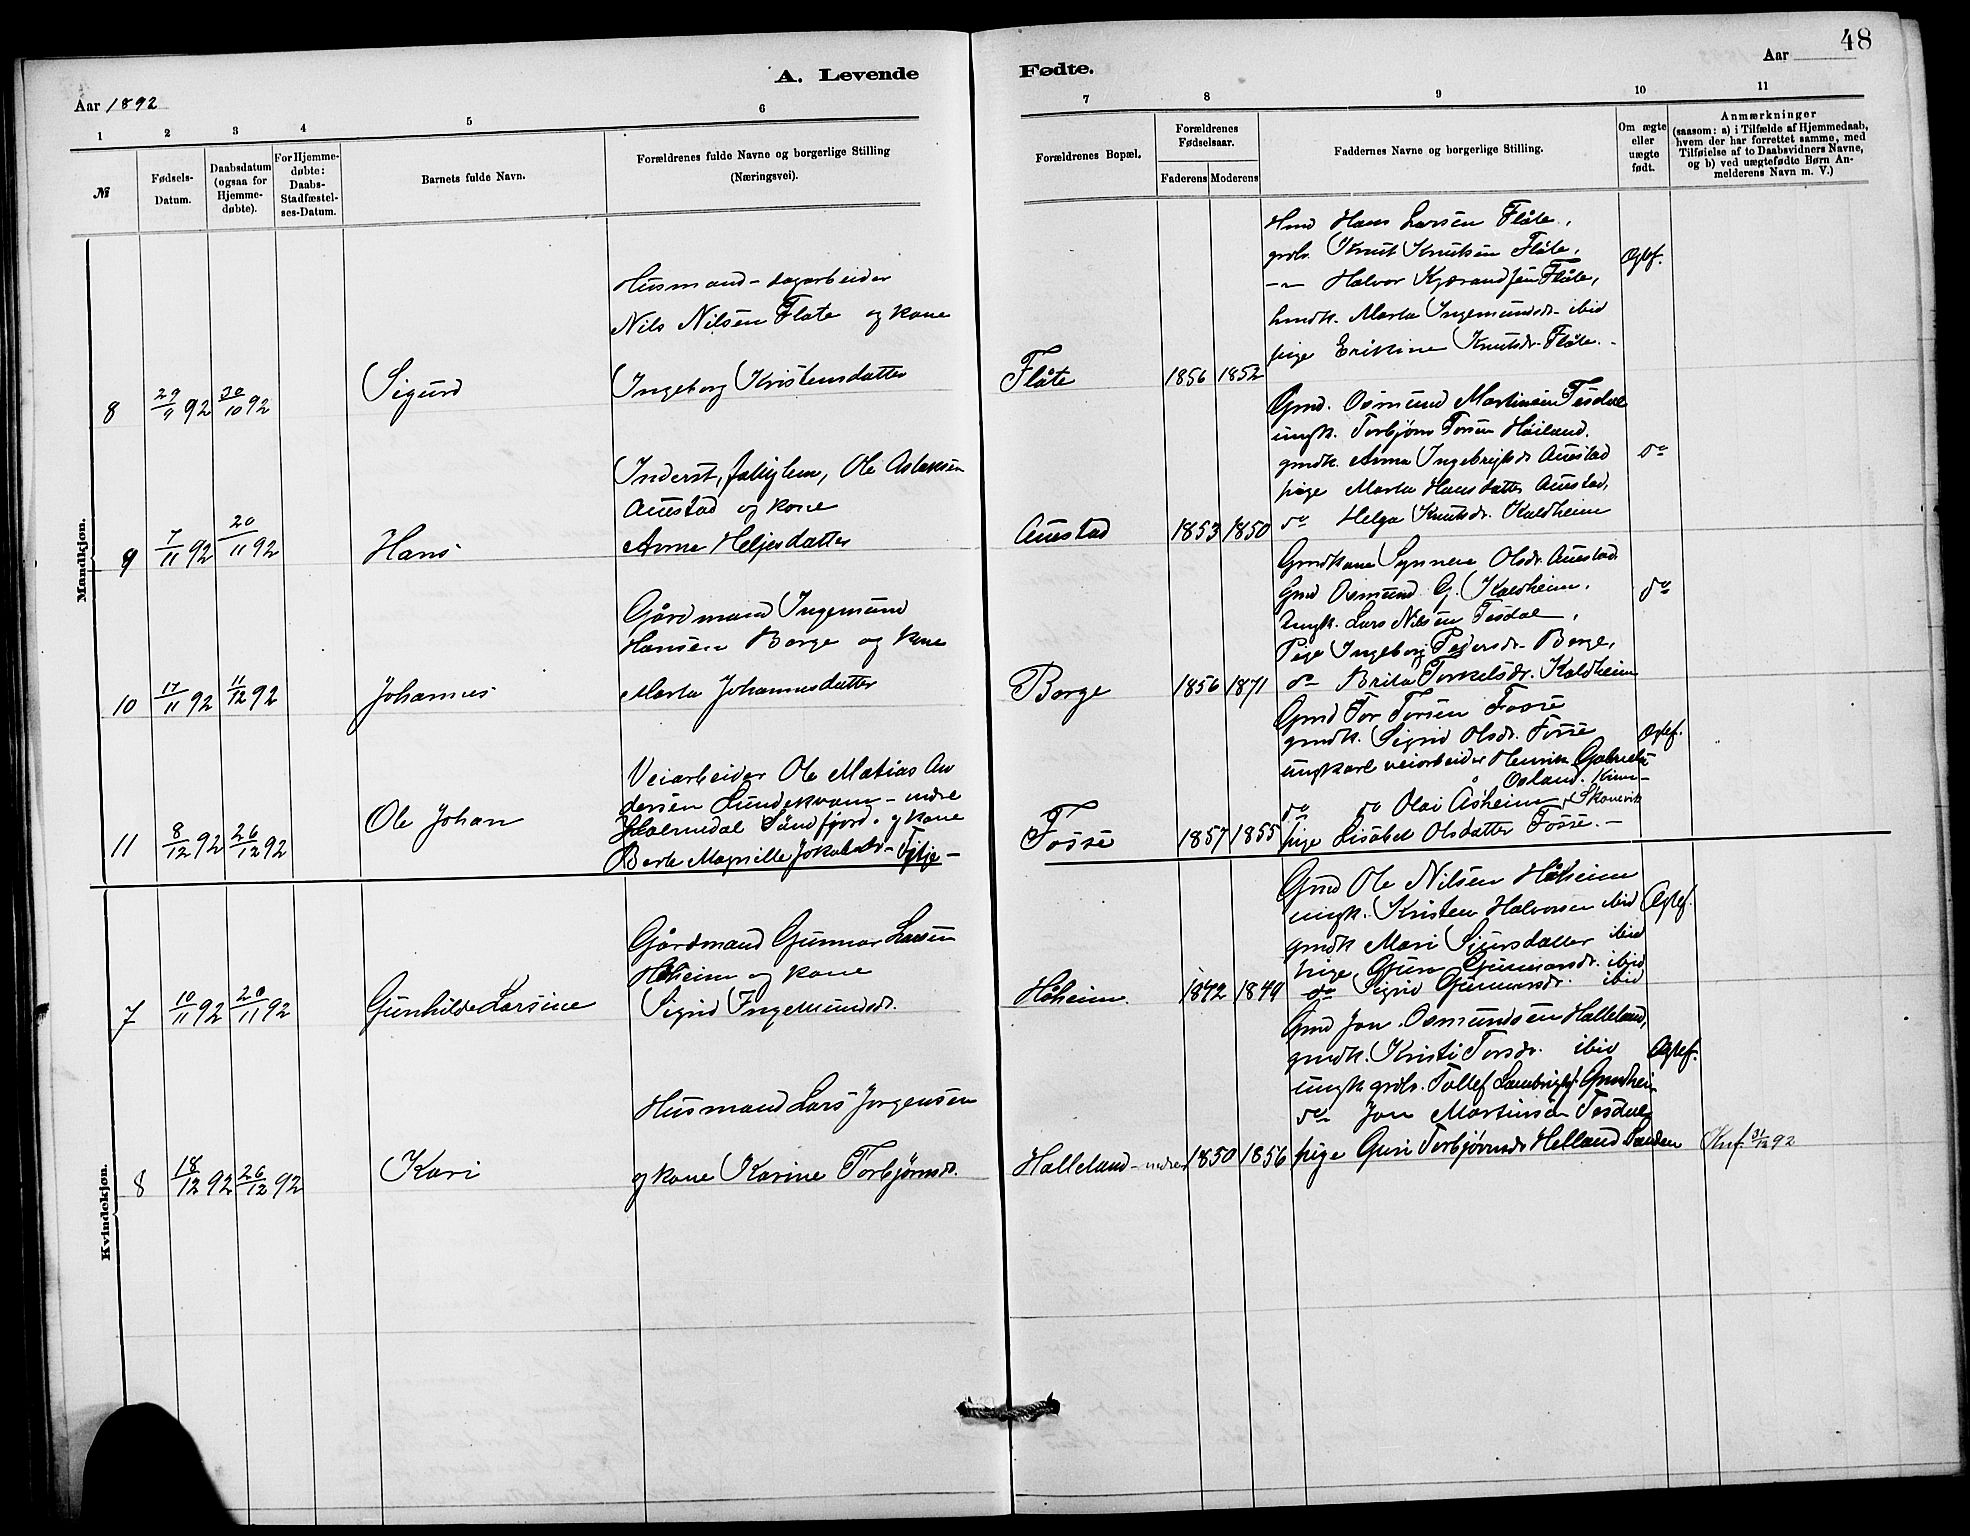 48
A. Levende Fødte.
Aar 1892
Aar
1 2 3 4 5 6 7 8 9 10 11
№
Fødsels-Datum.
Daabsdatum (ogsaa for Hjemme-døbte).
For Hjemme-døbte: Daabs-Stadfæstel-ses-Datum.
Barnets fulde Navn.
Forældrenes fulde Navne og borgerlige Stilling
(Næringsvei).
Forældrenes Bopæl.
Forældrenes Fødselsaar.
Faderens Moderens
Faddernes Navne og borgerlige Stilling.
Om ægte eller uægte født.
Anmærkninger
(saasom: a) i Tilfælde af Hjemmedaab,
hvem der har forrettet samme, med
Tilføielse af to Daabsvidners Navne,
og b) ved uægtefødte Børn An-
melderens Navn m. V.)
Mandkjøn.
8 29/9 92 30/10 92
Sigurd
Husmand - dagarbeider
Nils Nilsen Flate og kone
Ingeborg Kristensdatter
Flåte
1856 1852
Hmd Hans Larsen Flåte,
grdb. Knut Knutsen Flåte,
-"- Halvor Flåte,
hmdk. Marta Ingemundsdr. ibid
pige Erikine Knutsdr. Flåte.
Ægtef.
9 7/11 92 20/11 92
Hans
Inderst, Ole Aslaksen
Auestad og kone
Anna Heljesdatter
Auestad
1853 1850
Gmd. Osmund Martinsen Tesdal
ungk. Torbjørn Torsen Høiland.
gmdk. Anna Ingebrigtsdr. Auestad
pige Marta Hansdatter Auestad,
do Helga Knutsdr. Kaldheim
do
10 17/11 92 11/12 92
Johannes
Gårdmand Ingemund
Hansen Borge og kone
Marta Johannesdatter
Borge
1856 1871
Gmdkone Synneva Olsdr. Auestad
Gmd Osmund G. Kaldheim,
Ungk. Lars Nilsen Tesdal,
Pige Ingeborg Pedersdr. Borge,
do Brita Torkelsdr. Kaldheim
do
11 8/12 92 26/12 92
Ole Johan
Veiarbeider Ole Matias An
dersen - indre
Holmedal Søndfjord. og kone
Berte Jakobsdr.
Fosse
1857 1855
Gmd Tor Torsen Fosse
gmdk. Sigrid Olsdr. Fosse
ungkarl veiarbeider Henrik
Osland.
do do Olai Åsheim, Skonevik
pige Lisabet Olsdatter Fosse. -
Ægtef.
Kvindekjøn.
7 10/11 92 20/11 92
Gunhilde Larsine
Gårdmand Gunnar Larsen
Håheim og kone
Sigrid Ingemundsdr.
Håheim.
1842 1849
Gmd Ole Nilsen Håheim
ungk. Kristen Halvorsen ibid
gmdk Mari Sjursdatter ibid
pige Guri Gunnarsdr. ibid
do Sigrid Gunnarsdr. ibid
Ægtef.
8 18/12 92 26/12 92
Kari
Husmand Lars Jørgensen
og kone Karine Torbjørnsdr.
Halleland - indre
1850 1856
Gmd Jon Osmundsen Halleland,
gmdk. Kristi Torsdr. ibid
ungk grdb. Tollef
do Jon Martinsen Tesdal,
pige Guri Torbjørnsdr Helland
Ægtef.
31/12 92